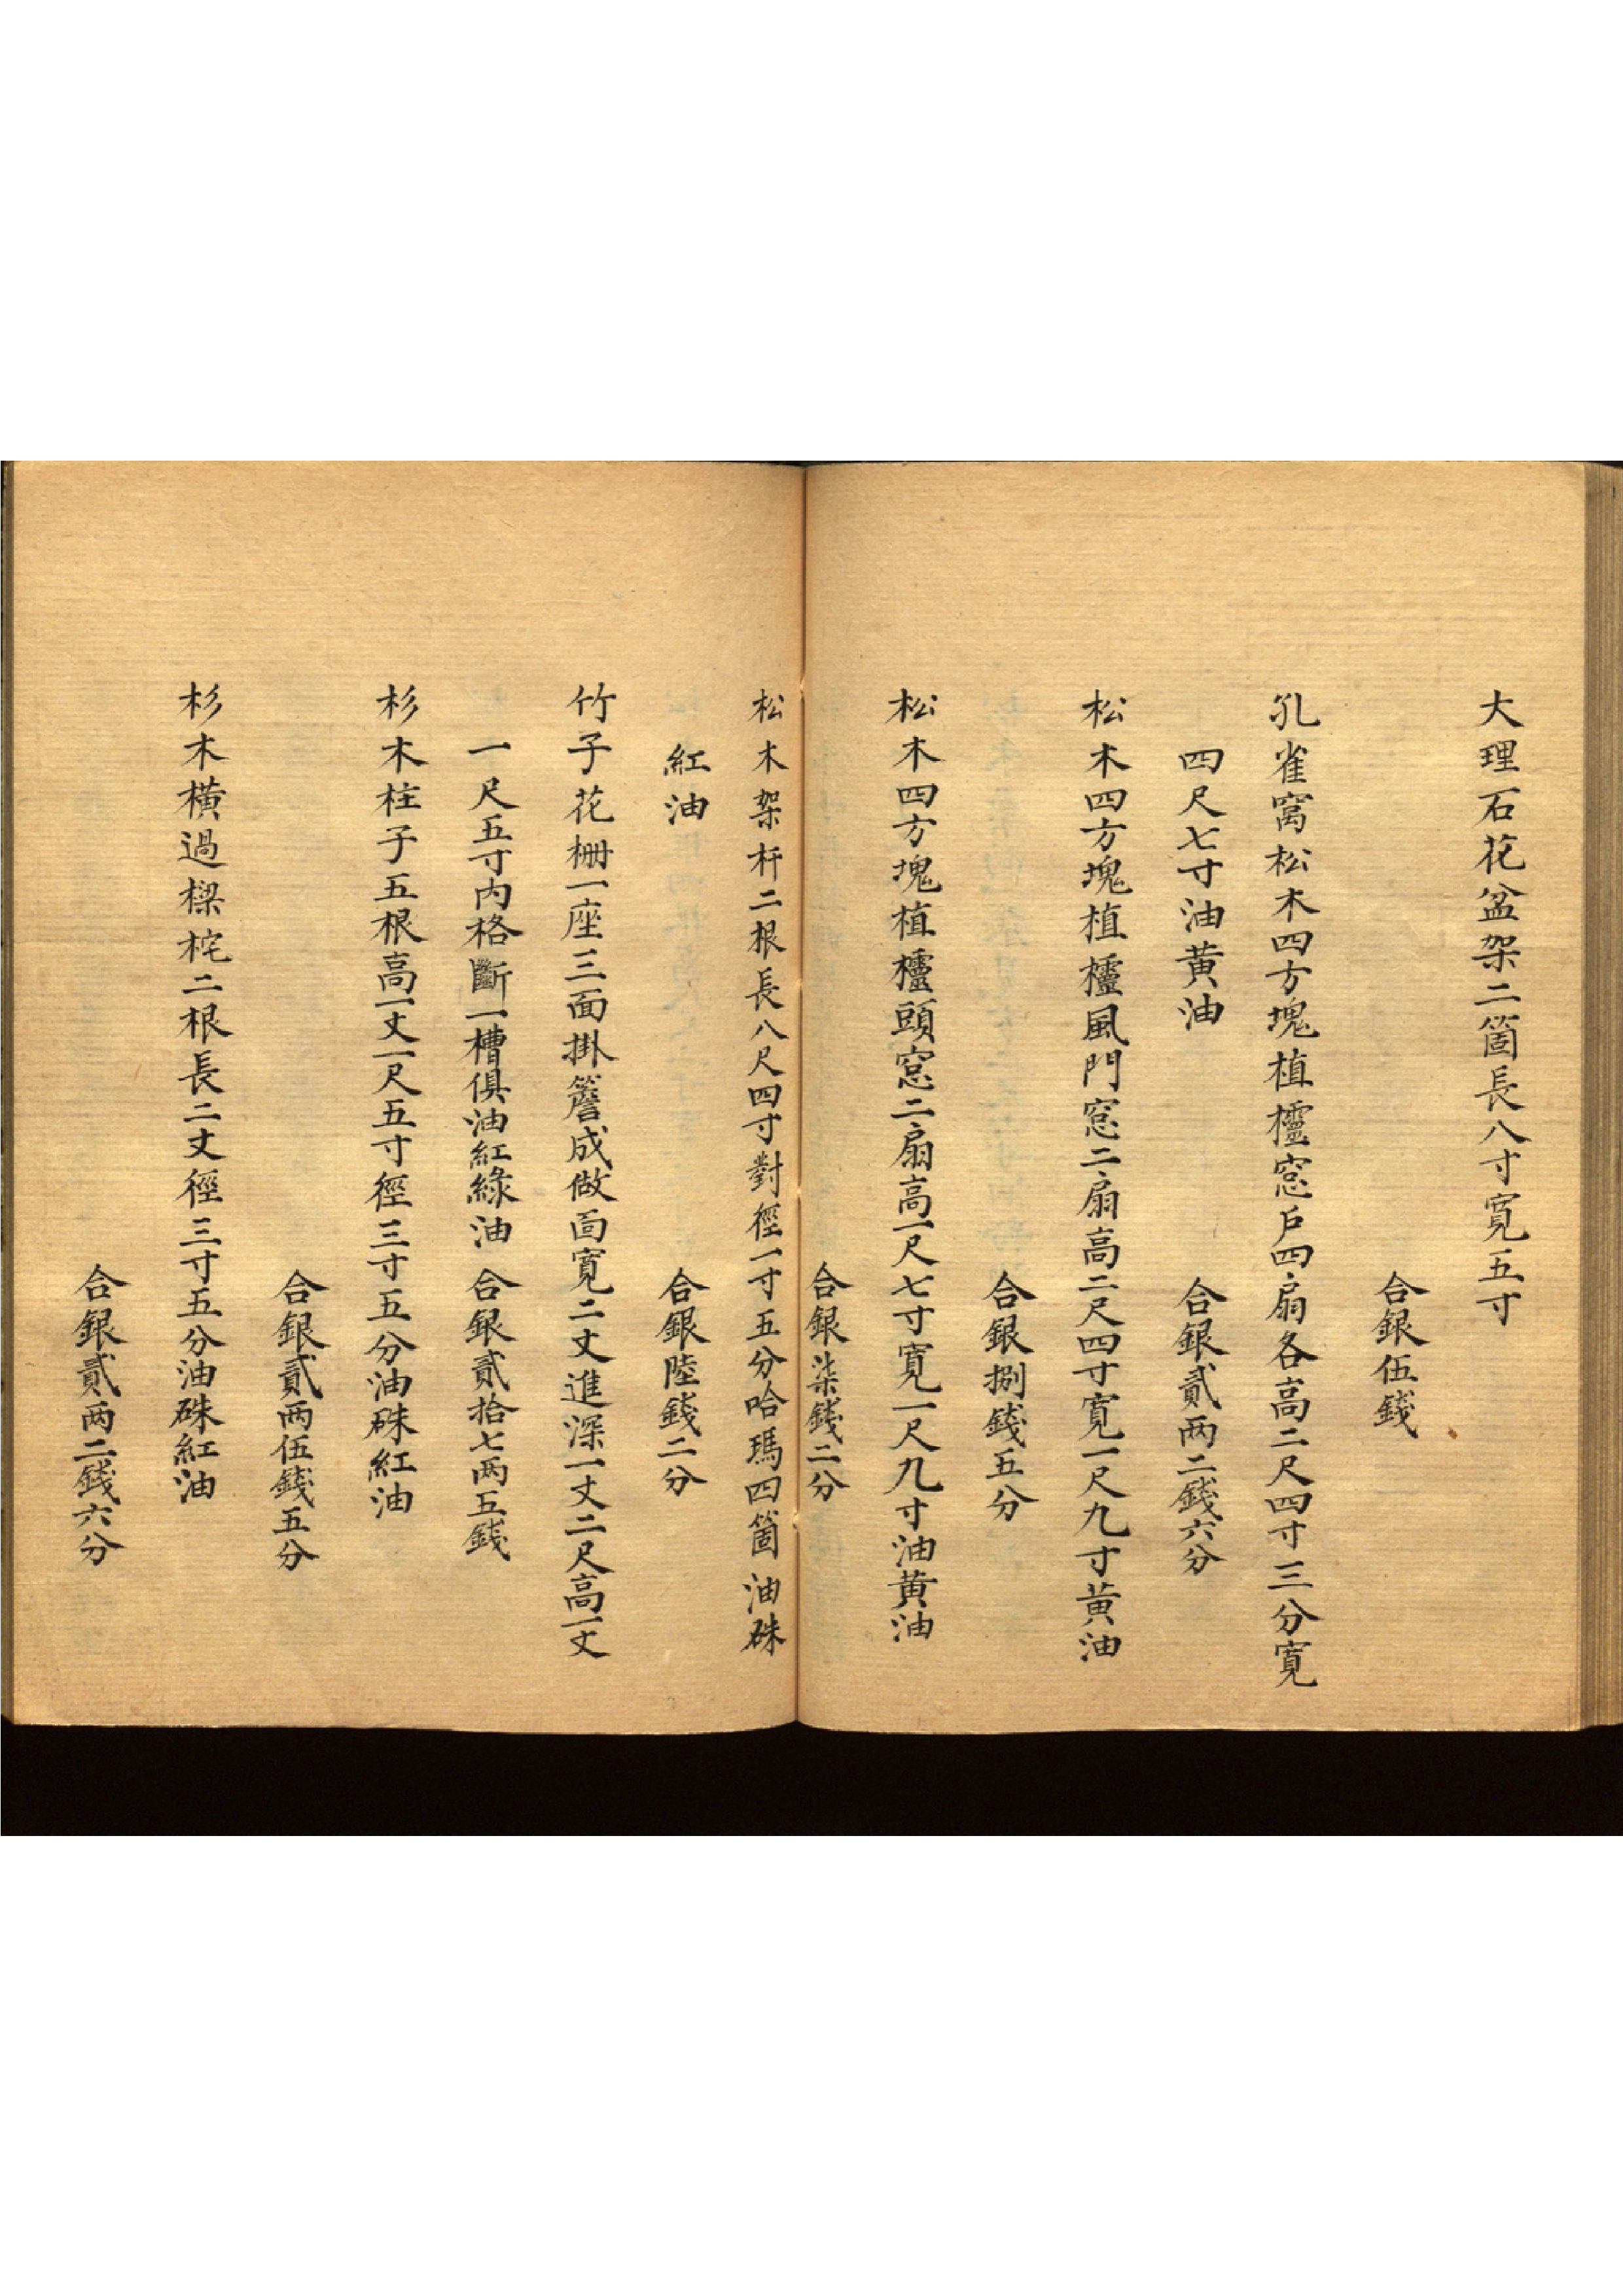 大理石花盆架二箇長八寸寬五寸
合銀伍錢
孔雀窩松木四方塊植櫺窓戶四扇各高二尺四寸三分寬
四尺七寸油黃油　合銀貳両二錢六分
松木四方塊植櫺風門窓二扇高二尺四寸寬一尺九寸黃油
合銀捌錢五分
松木四方塊植櫺頭窓二扇高一尺七寸寬一尺九寸油黃油
合銀柒錢二分
松木架杆二根長八尺四寸對徑一寸五分哈瑪四箇油硃
紅油　合銀陸錢二分
竹子花柵一座三面掛簷成做面寬二丈進深一丈二尺高一丈
一尺五寸內格斷一槽俱油紅綠油　合銀貳拾七両五錢
杉木柱子五根高一丈一尺五寸徑三寸五分油硃紅油
合銀貳両伍錢五分
杉木橫過樑柁二根長二丈徑三寸五分油硃紅油
合銀貳両二錢六分